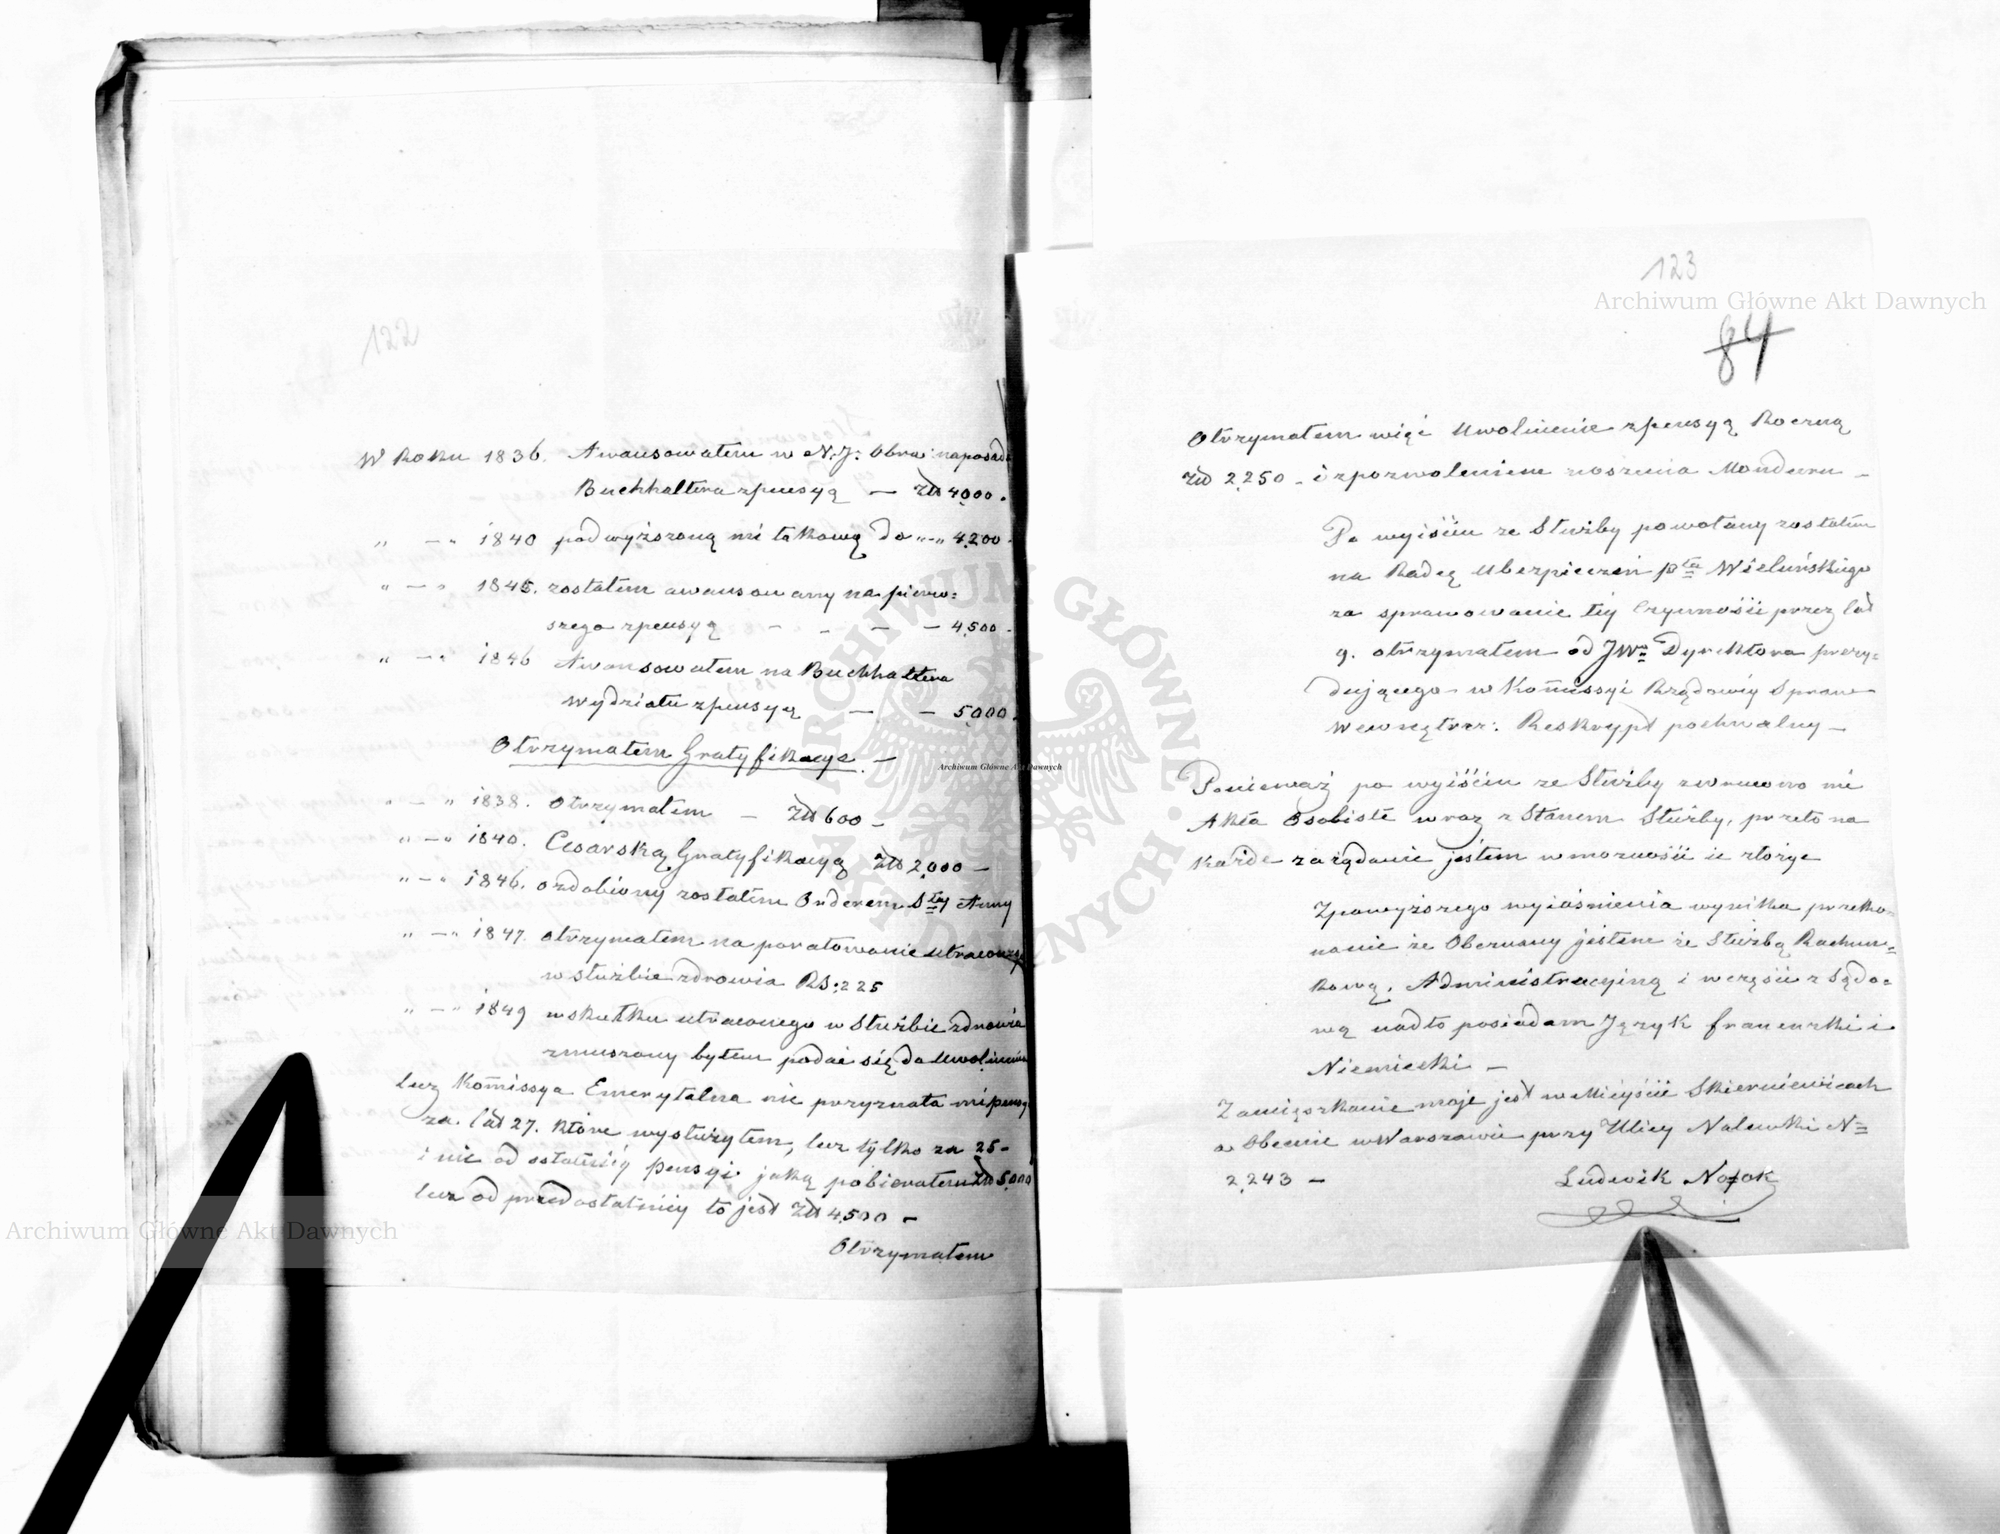 122
W Roku 1836. Awansowałem w N. J. Obra: naposadę
Buchhaltera zpensyą — Złt 4,000.
„ — „ 1840 podwyższoną mi takową do „—„ 4,200.
„ — „ 1845. zostałem awansowany na pierw=
szego zpensyą — — — — 4,500.
„ — „ 1846 Awansowałem na Buchhaltera
wydziału zpensyą — — 5,000.
Otrzymałem Gratyfikacye. —
„ — „ 1838. Otrzymałem — Złt 600 —
„ — „ 1840. Cesarską Gratyfikacyą Złt 2,000 —
„ — „ 1846. ozdobiony zostałem Orderem Stej Anny
„ — „ 1847. otrzymałem na poratowanie utraconego
w służbie zdrowia RS: 225
„ — „ 1849 wskutku utraconego w Służbie zdrowia
zmuszony byłem podać się do Uwolnienia
lecz Kommissya Emerytalna nie przyznała mi pensyi
za lat 27. które wysłużyłem, lecz tylko za 25 —
i nie od ostatniéy pensyi jaką pobierałem Złt 5,000
lecz od przedostatniéy to jest Złt 4,500 —
Otrzymałem
123
84
Otrzymałem więc Uwolnienie zpensyą Roczną
Złt 2,250 — i zpozwoleniem noszenia Munduru —
Po wyiściu ze Służby powołany zostałem
na Radcę Ubezpieczeń ptu Wieluńskiego
za sprawowanie téy Czynności przez lat
9. otrzymałem od JWo Dyrektora prezy=
dującego w Kommissyi Rządowéy Spraw
Wewnętrz: Reskrypt pochwalny —
Ponieważ po wyiściu ze Służby zwrócono mi
Akta Osobiste wraz z Stanem Służby, przeto na
każde zażądanie jestem w możności je złożyć
Zpowyższego wyiaśnienia wynika przeko=
nanie że Obeznany jestem ze Służbą Rachun=
kową, Administracyjną i wczęści z Sądo=
wą nadto posiadam Język francuzki i
Niemiecki —
Zamięszkanie moje jest w Mieyście Skierniewicach
a Obecnie w Warszawie przy Ulicy Nalewki N=
2,243 —
Ludwik Nozok
Archiwum Główne Akt Dawnych
Archiwum Główne Akt Dawnych
Archiwum Główne Akt Dawnych
ARCHIWUM GŁÓWNE AKT DAWNYCH